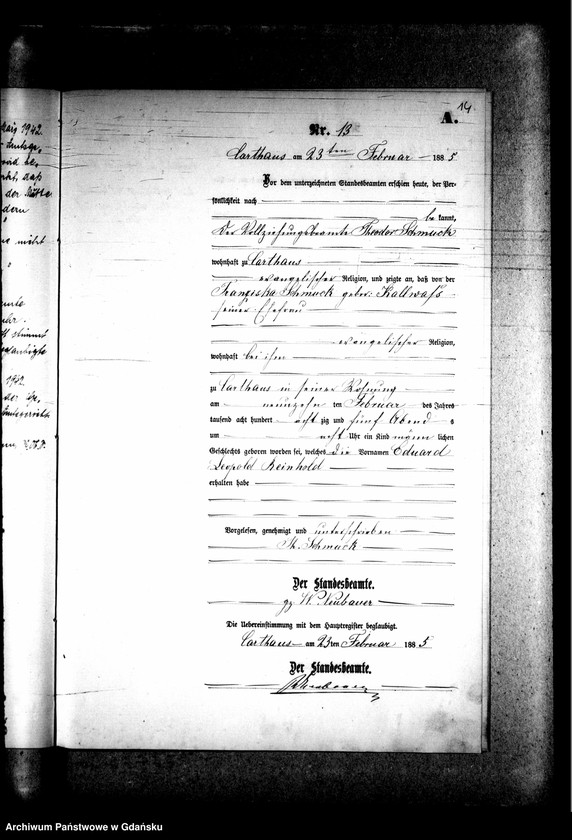 14
A.
Nr. 13
Carthaus am 23ten Februar 1885
Vor dem unterzeichneten Standesbeamten erschien heute, der Per-
sönlichkeit nach
be kannt,
der Vollziehungsbeamte Theodor Schmuck
wohnhaft zu Carthaus
evangelischer Religion, und zeigte an, daß von der
Franziska Schmuck geborenen Kallwass
seiner Ehefrau
evangelischer Religion,
wohnhaft bei ihm
zu Carthaus in seiner Wohnung
am neunzehn ten Februar des Jahres
tausend acht hundert acht zig und fünf Abend s
um acht Uhr ein Kind männ lichen
Geschlechts geboren worden sei, welches die Vornamen Eduard
Leopold Reinhold
erhalten habe
Vorgelesen, genehmigt und unterschrieben
Th. Schmuck
Der Standesbeamte.
gz W. Neubauer
Die Uebereinstimmung mit dem Hauptregister beglaubigt.
Carthaus am 23ten Februar 1885
Der Standesbeamte.
Neubauer
1942.
daß
der
1942.
Archiwum Państwowe w Gdańsku